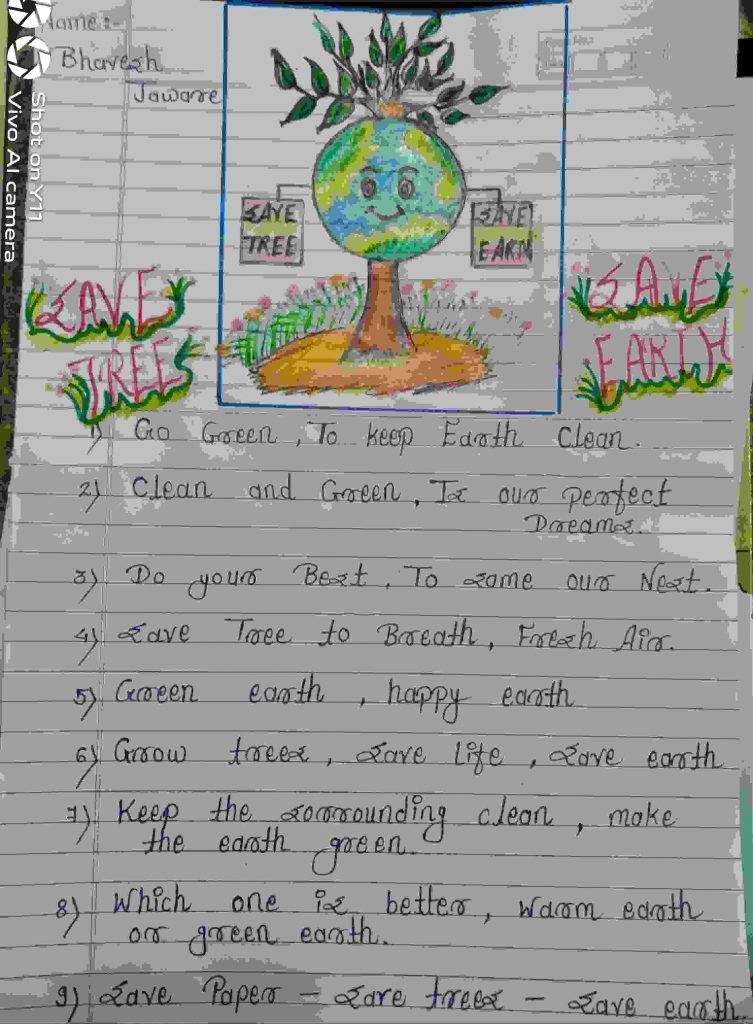 Name:-
Bhavesh
Jaware
Shot on Y11
Vivo AI camera
SAVE
TREE
SAVE
EARH
SAVE
TREE
SAVE
EARTH
1) Go Green, To keep Earth Clean.
2) Clean and Green, Is our perfect
Dreams.
3) Do your Best, To same our Nest.
4) Save Tree to Breath, Fresh Air.
5) Green earth, happy earth
6) Grow trees, Save Life, Save earth
7) Keep the sorrounding clean, make
the earth green.
8) Which one is better, Warm earth
or green earth.
9) Save Paper - Save trees - Save earth.